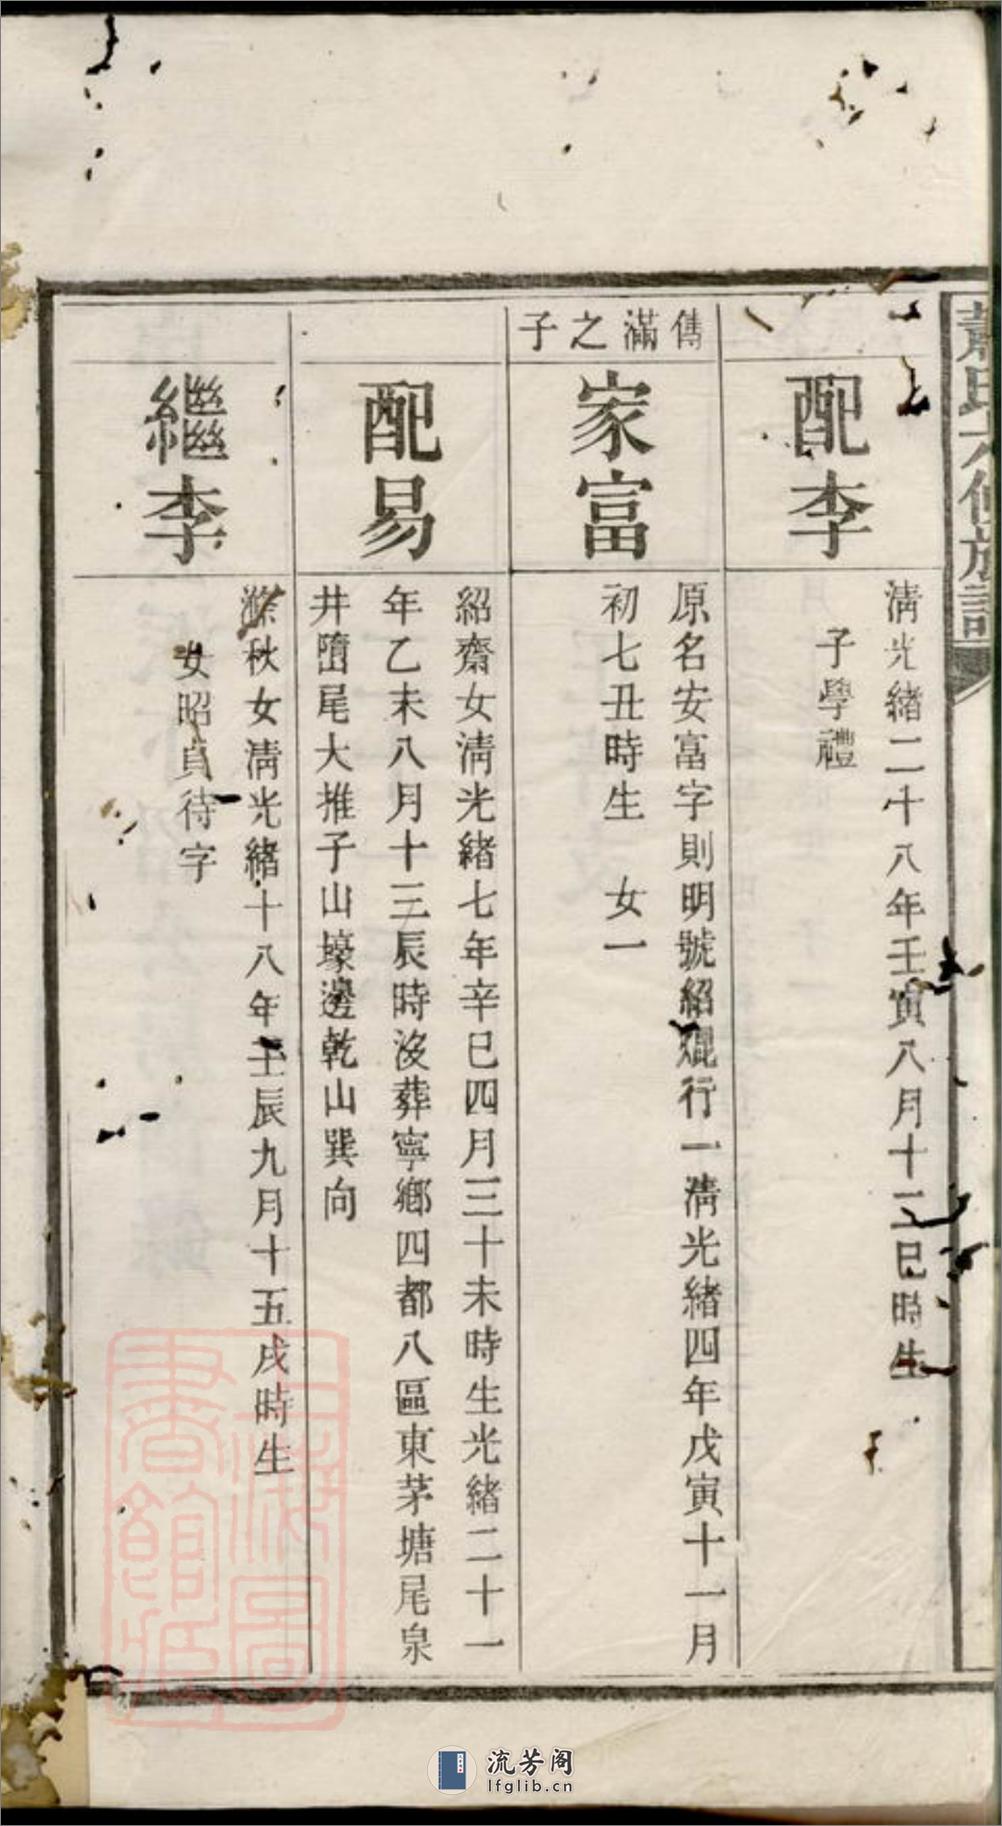 蕭氏六修族譜
配李
清光緒二十八年壬寅八月十二巳時生
子學禮
傳滿之子
家富
原名安富字則明號紹焜行一清光緒四年戊寅十一月
初七丑時生　女一
配易
紹齋女清光緒七年辛巳四月三十未時生光緒二十一
年乙未八月十三辰時沒葬寧鄉四都八區東茅塘尾泉
井墈尾大推子山壕邊乾山巽向
繼李
滌秋女清光緒十八年壬辰九月十五戌時生
女昭貞待字
上海圖書館藏
流芳阁
lfglib.cn